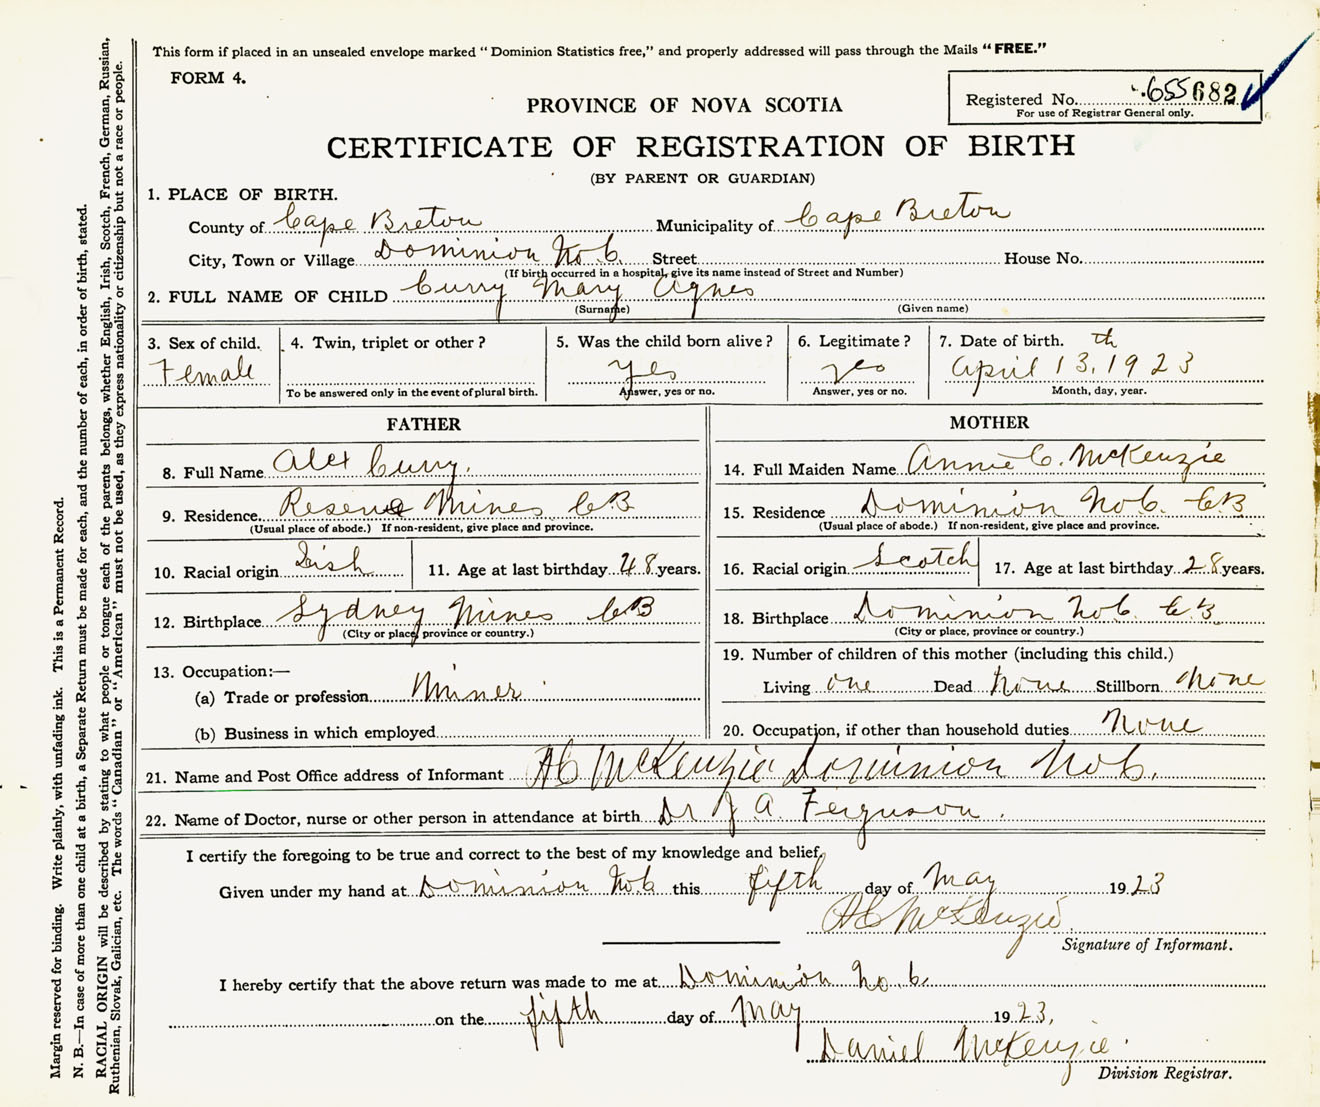 This form if placed in an unsealed envelope marked "Dominion Statistics free," and properly addressed will pass through the Mails "FREE."
FORM 4.
Registered No. 655682
For use of Registrar General only.
PROVINCE OF NOVA SCOTIA
CERTIFICATE OF REGISTRATION OF BIRTH
(BY PARENT OR GUARDIAN)
1. PLACE OF BIRTH.
County of Cape Breton Municipality of Cape Breton
City, Town or Village Dominion No 6. Street House No.
(If birth occurred in a hospital, give its name instead of Street and Number)
2. FULL NAME OF CHILD Curry Mary Agnes
(Surname) (Given name)
3. Sex of child. Female
4. Twin, triplet or other?
To be answered only in the event of plural birth.
5. Was the child born alive? yes
Answer, yes or no.
6. Legitimate? yes
Answer, yes or no.
7. Date of birth. April 13th, 1923
Month, day, year.
FATHER
8. Full Name Alex Curry.
9. Residence Reserve Mines C B
(Usual place of abode.) If non-resident, give place and province.
10. Racial origin Irish 11. Age at last birthday 48 years.
12. Birthplace Sydney Mines C B
(City or place, province or country.)
13. Occupation:—
(a) Trade or profession Miner
(b) Business in which employed
MOTHER
14. Full Maiden Name Annie C. McKenzie
15. Residence Dominion No 6. C.B
(Usual place of abode.) If non-resident, give place and province.
16. Racial origin Scotch 17. Age at last birthday 28 years.
18. Birthplace Dominion No 6 C B
(City or place, province or country.)
19. Number of children of this mother (including this child.)
Living one Dead None Stillborn None
20. Occupation, if other than household duties None
21. Name and Post Office address of Informant AC McKenzie Dominion No 6.
22. Name of Doctor, nurse or other person in attendance at birth Dr J A. Ferguson.
I certify the foregoing to be true and correct to the best of my knowledge and belief,
Given under my hand at Dominion No 6 this fifth day of May 1923
AC McKenzie
Signature of Informant.
I hereby certify that the above return was made to me at Dominion No. 6.
on the fifth day of May 1923,
Daniel McKenzie
Division Registrar.
Margin reserved for binding. Write plainly, with unfading ink. This is a Permanent Record.
N. B.—In case of more than one child at a birth, a Separate Return must be made for each, and the number of each, in order of birth, stated.
RACIAL ORIGIN will be described by stating to what people or tongue each of the parents belongs, whether English, Irish, Scotch, French, German, Russian,
Ruthenian, Slovak, Galician, etc. The words "Canadian" or "American" must not be used, as they express nationality or citizenship but not a race or people.